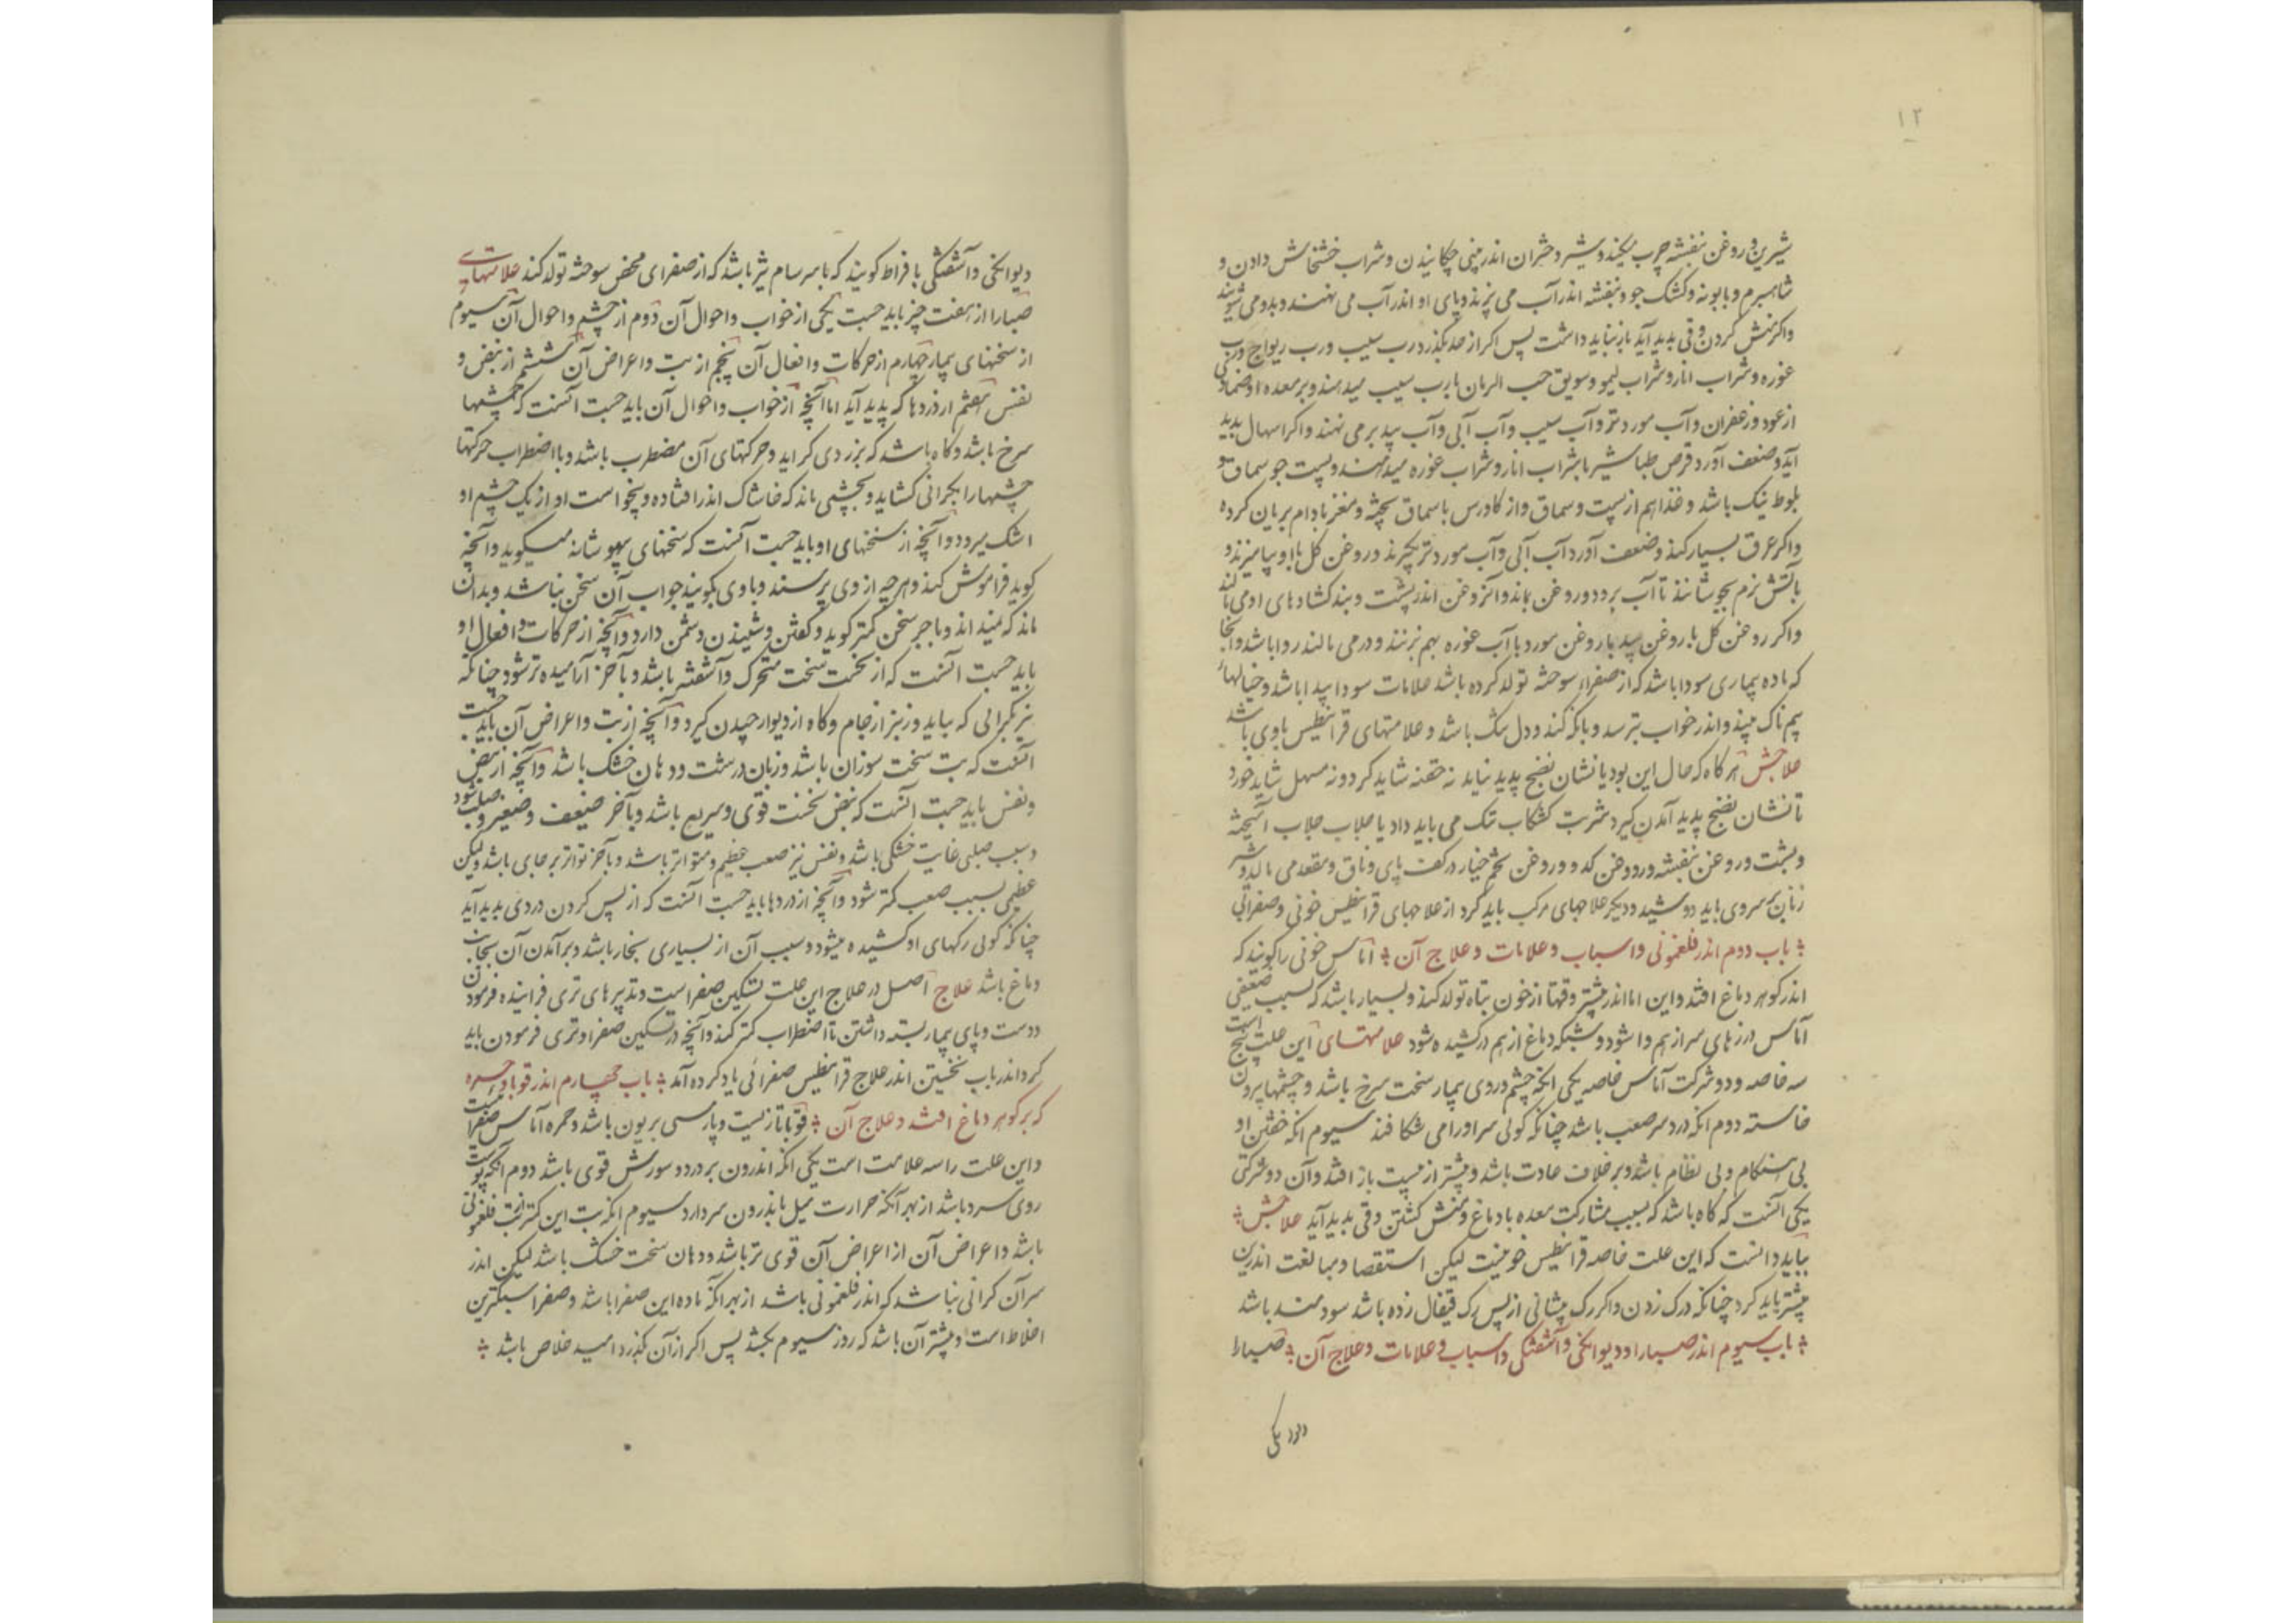 ۱۲
شیرین و روغن بنفشه چرب میکنند و شیر دختران اندر بینی چکانیدن و شراب خشخاش دادن و
شاهسپرم و بابونه و کشک جو و بنفشه اندر آب می پزند و پای او اندر آب می نهند و بدو می شویند
واکر منش کردن و قی پدید آید باز نباید داشت پس اکر از حد بکذرد رب سیب و رب ریواج و رب
غوره و شراب انار و شراب لیمو و سویق حب الرمان با رب سیب میدهند و بر معده او ضمادی
از عود و زعفران و آب مورد تر و آب سیب و آب آبی و آب بید بر می نهند واکر اسهال پدید
آید و ضعف آورد قرص طباشیر با شراب انار و شراب غوره میدهند و پست جو سماق و
بلوط نیک باشد و غذا هم از پست و سماق و از کاورس با سماق پخته و مغز بادام بریان کرده
واکر عرق بسیار کند و ضعف آورد آب آبی و آب مورد تر بکیرند و روغن کل با او بیامیزند و
بآتش نرم بجوشانند تا آب برود و روغن بماند و آن روغن اندر پشت و بند کشادهای او می مالند
واکر روغن کل با روغن بید با روغن مورد با آب غوره بهم بزنند و در می مالند روا باشد و آنجا
که ماده بیماری سودا باشد که از صفراء سوخته تولد کرده باشد علامات سودا پیدا باشد و خیالهاء
بیم ناک بیند و اندر خواب بترسد و بانک کند و دل تنک باشد و علامتهای قرانیطس باوی باشد
علاجش هر کاه که حال این بود یا نشان نضج پدید نیاید نه حقنه شاید کرد و نه مسهل شاید خورد
تا نشان نضج پدید آمدن کیرد شربت کشکاب تنک می باید داد یا جلاب جلاب آمیخته
و پشت و روغن بنفشه و روغن کدو و روغن تخم خیار در کف پای و ناف و مقعد می مالد و شیر
زنان بر سر وی باید دوشید و دیکر علاجهای مرکب باید کرد از علاجهای قرانیطس خونی و صفرائی
باب دوم اندر فلغمونی و اسباب و علامات و علاج آن آماس خونی را کویند که
اندر کوهر دماغ افتد و این اماس بیشتر وقتها از خون تباه تولد کند و بسیار باشد که بسبب ضعیفی
آماس درزهای سر از هم وا شود و شبکه دماغ از هم در کشیده شود علامتهای این علت پنج است
سه خاصه و دو شرکت آماس خاصه یکی آنکه چشم و روی بیمار سخت سرخ باشد و چشمها برون
خاسته دوم آنکه درد سر صعب باشد چنانکه کوئی سر او را می شکافند سیوم آنکه خفتن او
بی هنکام و بی نظام باشد و بر خلاف عادت باشد و بیشتر از پشت باز افتد و آن دو شرکتی
یکی آنست که کاه باشد که بسبب مشارکت معده با دماغ و منش کشتن و قی پدید آید علاجش
بباید دانست که این علت خاصه قرانیطس خونیست لیکن استقصا و مبالغت اندرین
بیشتر باید کرد چنانکه درک زدن واکر رک پیشانی از پس رک قیفال زده باشد سودمند باشد
باب سیوم اندر صبارا و دیوانکی و آشفتکی و اسباب و علامات و علاج آن صبارا
دیوانکی و آشفتکی بافراط کویند که با سرسام نیز باشد که از صفرای محض سوخته تولد کند علامتهای
صبارا از هفت چیز باید جست یکی از خواب و احوال آن دوم از چشم و احوال آن سیوم
از سخنهای بیمار چهارم از حرکات و افعال آن پنجم از تب و اعراض آن ششم از نبض و
نفس هفتم از دردها که پدید آید اما آنچه از خواب و احوال آن باید جست آنست که چشمها
سرخ باشد و کاه باشد که بزردی کراید و حرکتهای آن مضطرب باشد و با اضطراب حرکتها
چشمها را بکرانی کشاید و بچشمی ماند که خاشاک اندر افتاده و بیخواست او از یک چشم او
اشک برود و آنچه از سخنهای او باید جست آنست که سخنهای بیهوشانه میکوید و آنچه
کوید فراموش کند و هرچه از وی پرسند و باوی بکویند جواب آن سخن نباشد و بدان
ماند که نمیداند و با جز سخن کمتر کوید و کفتن و شنیدن دشمن دارد و آنچه از حرکات و افعال او
باید جست آنست که از نخست سخت متحرک و آشفته باشد و بآخر آرامیده تر شود چنانکه
نیز بکرانی که بیاید و زیبر از جام و کاه از دیوار چیدن کیرد و آنچه از تب و اعراض آن باید جست
آنست که تب سخت سوزان باشد و زبان درشت و دهان خشک باشد و آنچه از نبض
و نفس باید جست آنست که نبض نخست قوی و سریع باشد و بآخر ضعیف و صغیر و صلب شود
و سبب صلبی غایت خشکی باشد و نفس نیز صعب عظیم و متواتر باشد و بآخر تواتر بر جای باشد ولیکن
عظیمی بسبب صعب کمتر شود و آنچه از دردها باید جست آنست که از پس کردن دردی پدید آید
چنانکه کوئی رکهای او کشیده میشود و سبب آن از بسیاری بخار باشد و برآمدن آن بجانب
دماغ باشد علاج اصل در علاج این علت تسکین صفراست و تدبیرهای تری فزاینده فرمودن
دست و پای بیمار بسته داشتن تا اضطراب کمتر کند و آنچه در تسکین صفرا و تری فرمودن باید
کرد اندر باب نخستین اندر علاج قرانیطس صفرائی یاد کرده آمد باب چهارم اندر قوبا و حمره
که بر کوهر دماغ افتد و علاج آن قوبا تازیست و پارسی بریون باشد و حمره آماس صفراست
و این علت را سه علامت است یکی آنکه اندرون بر درد و سوزش قوی باشد دوم آنکه پوست
روی سرد باشد از بهر آنکه حرارت میل باندرون سر دارد سیوم آنکه تب این کمتر از تب فلغمونی
باشد و اعراض آن از اعراض آن قوی تر باشد و دهان سخت خشک باشد لیکن اندر
سر آن کرانی نباشد که اندر فلغمونی باشد از بهر آنکه ماده این صفرا باشد و صفرا سبکترین
اخلاط است و بیشتر آن باشد که روز سیوم بکشد پس اکر از آن بکذرد امید خلاص باشد